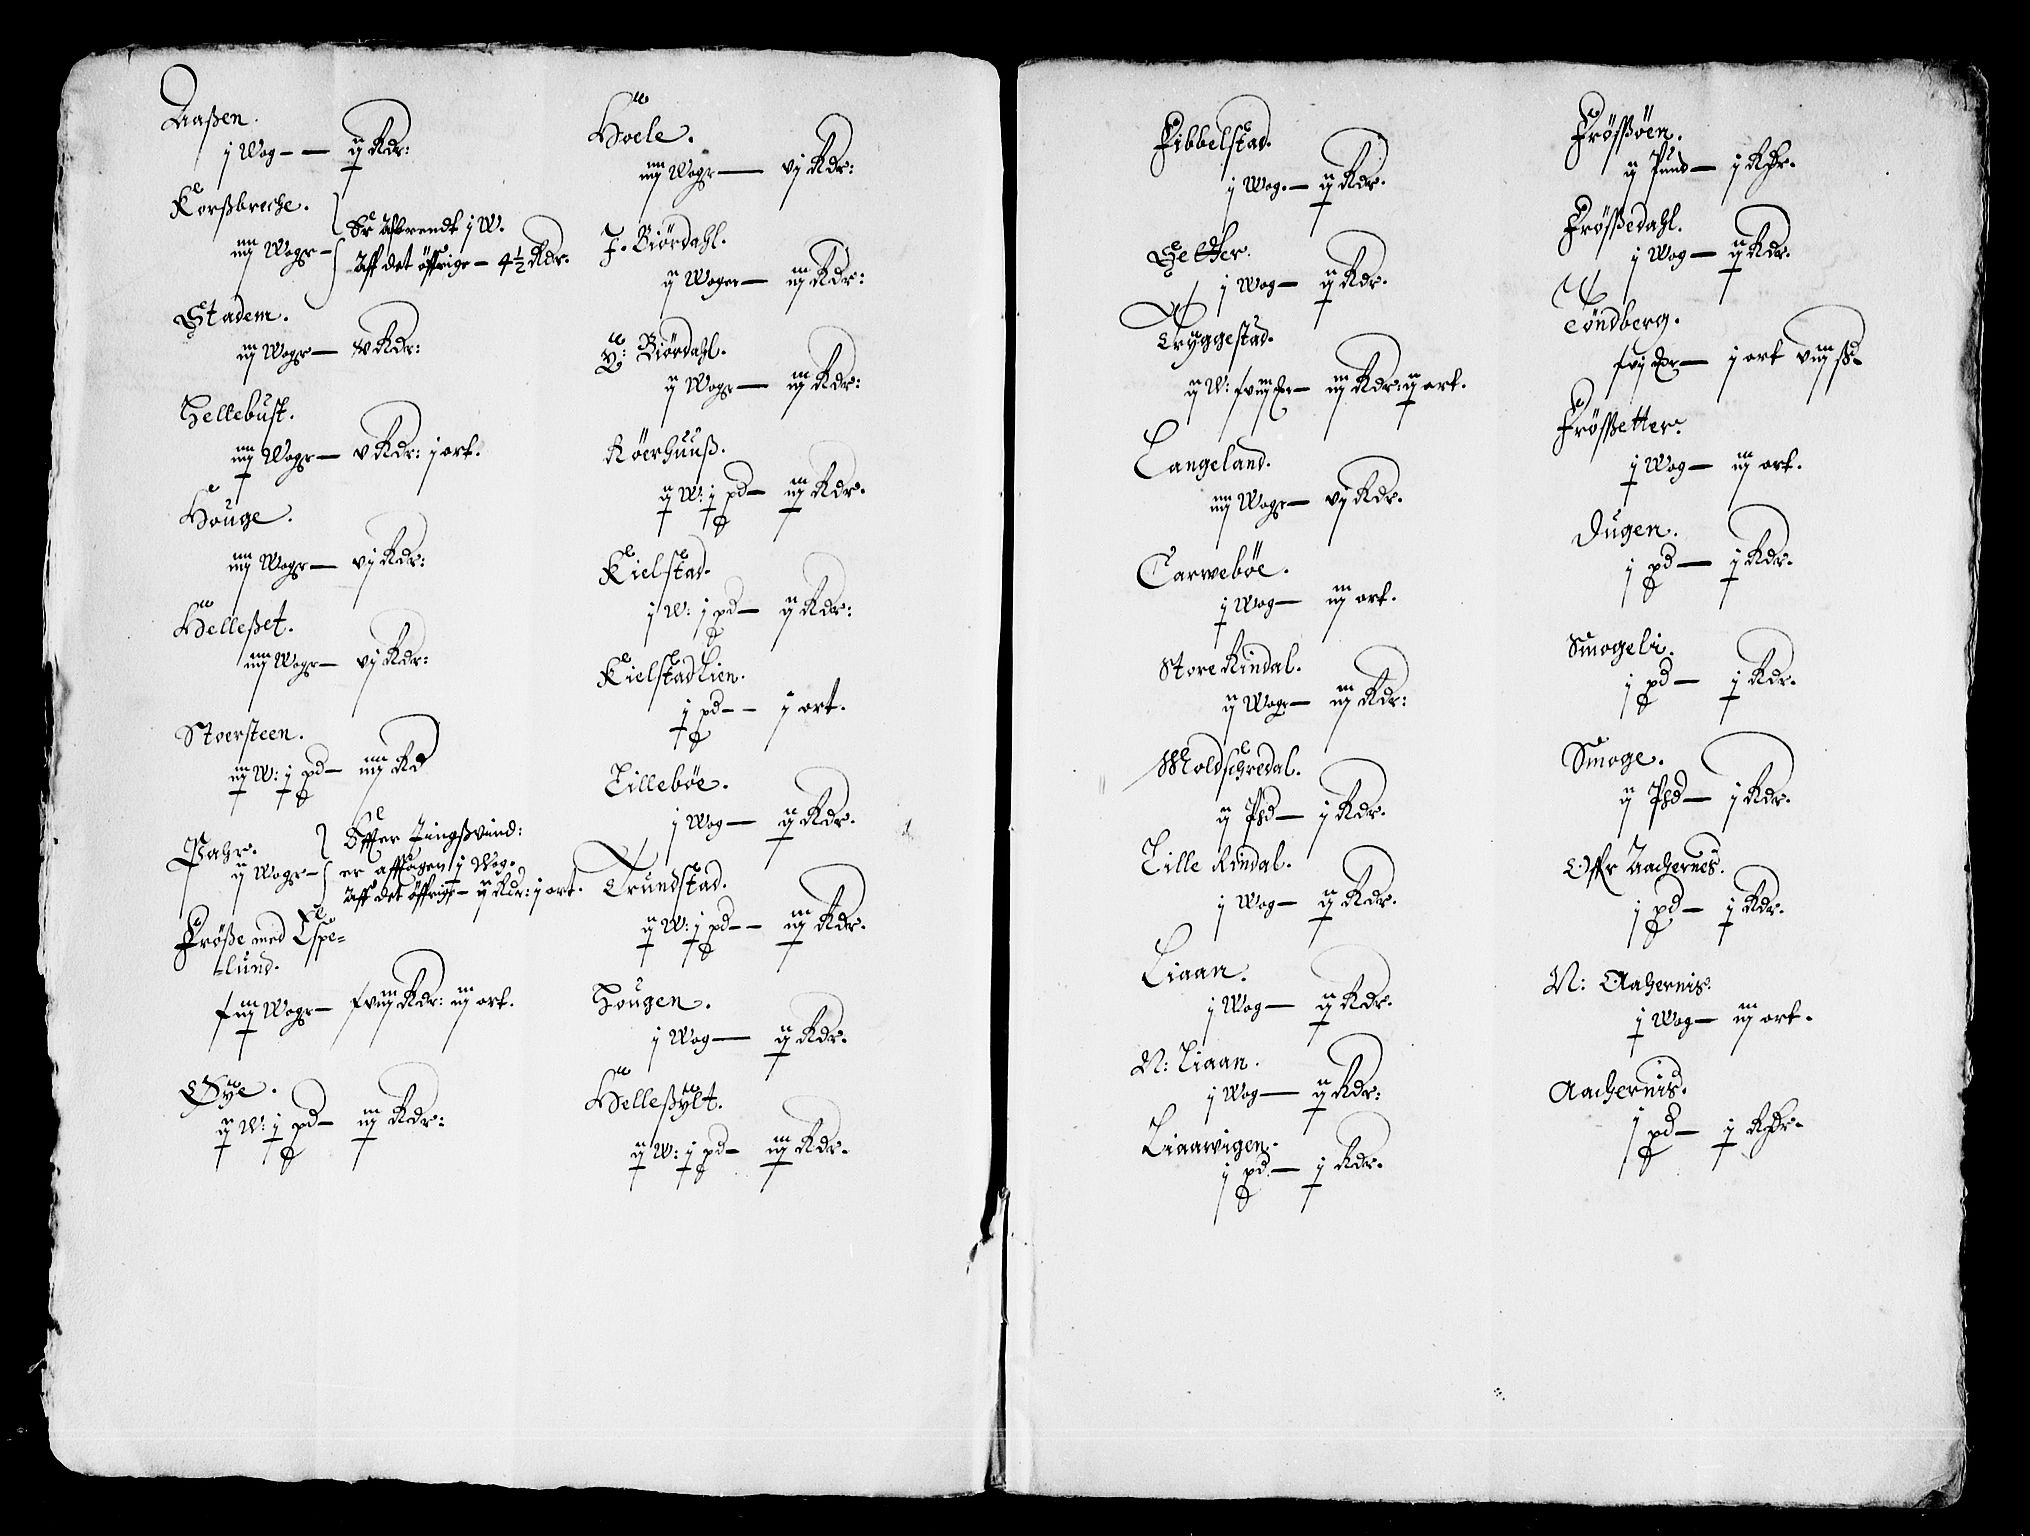 Aaßen.
j Wog — ij Rdr:
Korßbreche.
iiij Wogr — Er afbrendt j W.
Aff det öffrige — 4½ Rdr.
Stadem.
iij Wogr — v Rdr:
Hellebust.
iiij Wogr — v Rdr: j ort.
Houge.
iiij Wogr — vj Rdr:
Helleßet.
iiij Wogr — vj Rdr:
Storsteen.
iij W: j pd — iiij Rd
Pahr.
ij Wogr — Effter Tingßvind:
er affsagen j Wog.
Aff det öffrige — ij Rdr: j ort.
Frøße med Espe=
=lund.
iij Wogr — Rdr: iij ort.
Øye.
ij W: j pd — iij Rdr:
Hoele.
iiij Wogr — vj Rdr:
J. Biördahl.
ij Woger — iij Rdr:
Y: Biördahl.
ij Wogr — iij Rdr:
Röerhuuß.
ij W: j pd — iij Rdr.
Kielstad.
j W: j pd — ij Rdr:
Kielstad Lien.
j pd — j ort.
Lillebøe.
j Wog — ij Rdr.
Trundstad.
ij W: j pd — iij Rdr.
Hougen.
j Wog — ij Rdr.
Helleßylt.
ij W: j pd — iij Rdr.
Fibbelstad.
j Wog. — ij Rdr.
Setter.
j Wog — ij Rdr.
Tryggestad.
ij W: — iij Rdr: ij ort.
Langeland.
iiij Wogr — vj Rdr.
Carwebøe.
j Wog — iij ort.
Store Rindal.
ij Wogr — iij Rdr:
Moldschredal.
ij Pd — j Rdr.
Lille Rindal.
j Wog — ij Rdr.
Liaan.
j Wog — ij Rdr.
N: Liaan.
j Wog — ij Rdr:
Liaawigen.
j pd — j Rdr.
Frößöen.
ij Pund — j Rdr.
Frößedahl.
j Wog — ij Rdr.
Töndberg.
j ort viij ß
Frößetter.
j Wog — iij ort.
Dugen.
j pd — j Rdr.
Smogeli.
j pd — j Rdr.
Smoge.
ij Pd — j Rdr.
Offr Aachernes.
j pd — j Rdr.
N: Aachernis.
j Wog — iij ort.
Aachernis.
j pd — j Rdr.